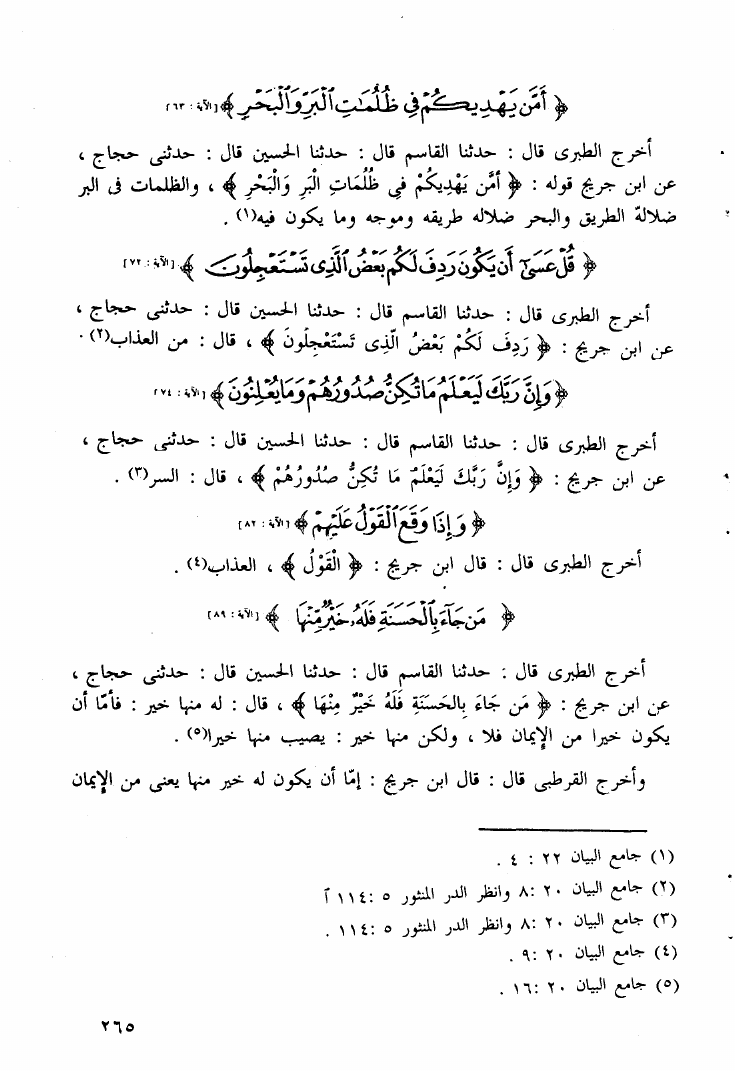 ﴿ أَمَّن يَهْدِيكُمْ فِى ظُلُمَـٰتِ ٱلْبَرِّ وَٱلْبَحْرِ ﴾ [الآية : ٦٣]
أخرج الطبرى قال : حدثنا القاسم قال : حدثنا الحسين قال : حدثنى حجاج ،
عن ابن جريج قوله : ﴿ أَمَّن يَهْدِيكُمْ فِي ظُلُمَاتِ الْبَرِ وَالْبَحْرِ ﴾ ، والظلمات فى البر
ضلالة الطريق والبحر ضلاله طريقه وموجه وما يكون فيه(١) .
﴿ قُلْ عَسَىٰٓ أَن يَكُونَ رَدِفَ لَكُم بَعْضُ ٱلَّذِى تَسْتَعْجِلُونَ ﴾ . [الآية : ٧٢]
أخرج الطبرى قال : حدثنا القاسم قال : حدثنا الحسين قال : حدثنى حجاج ،
عن ابن جريج : ﴿ رَدِفَ لَكُمْ بَعْضُ الَّذِى تَسْتَعْجِلُونَ ﴾ ، قال : من العذاب(٢) .
﴿ وَإِنَّ رَبَّكَ لَيَعْلَمُ مَا تُكِنُّ صُدُورُهُمْ وَمَا يُعْلِنُونَ ﴾ [الآية : ٧٤]
أخرج الطبرى قال : حدثنا القاسم قال : حدثنا الحسين قال : حدثنى حجاج ،
عن ابن جريج : ﴿ وَإِنَّ رَبَّكَ لَيَعْلَمُ مَا تُكِنُّ صُدُورُهُمْ ﴾ ، قال : السر(٣) .
﴿ وَإِذَا وَقَعَ ٱلْقَوْلُ عَلَيْهِمْ ﴾ [الآية : ٨٢]
أخرج الطبرى قال : قال ابن جريج : ﴿ الْقَوْلُ ﴾ ، العذاب(٤) .
﴿ مَن جَآءَ بِٱلْحَسَنَةِ فَلَهُۥ خَيْرٌ مِّنْهَا ﴾ [الآية : ٨٩]
أخرج الطبرى قال : حدثنا القاسم قال : حدثنا الحسين قال : حدثنى حجاج ،
عن ابن جريج : ﴿ مَن جَاءَ بِالحَسَنَةِ فَلَهُ خَيْرٌ مِنْهَا ﴾ ، قال : له منها خير : فأمّا أن
يكون خيرا من الإيمان فلا ، ولكن منها خير : يصيب منها خيرا(٥) .
وأخرج القرطبى قال : قال ابن جريج : إمّا أن يكون له خير منها يعنى من الإيمان
(١) جامع البيان ٢٢ : ٤ .
(٢) جامع البيان ٢٠ :٨ وانظر الدر المنثور ٥ :١١٤ آ
(٣) جامع البيان ٢٠ :٨ وانظر الدر المنثور ٥ :١١٤ .
(٤) جامع البيان ٢٠ :٩ .
(٥) جامع البيان ٢٠ :١٦ .
٢٦٥